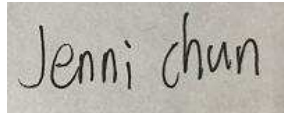 Jenni chun